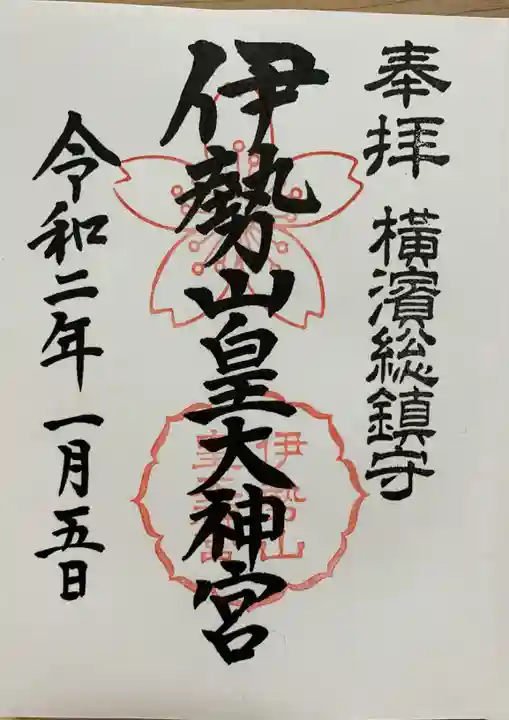 奉拝 横濱総鎮守
伊勢山皇大神宮
伊勢山
皇大神宮
令和二年一月五日